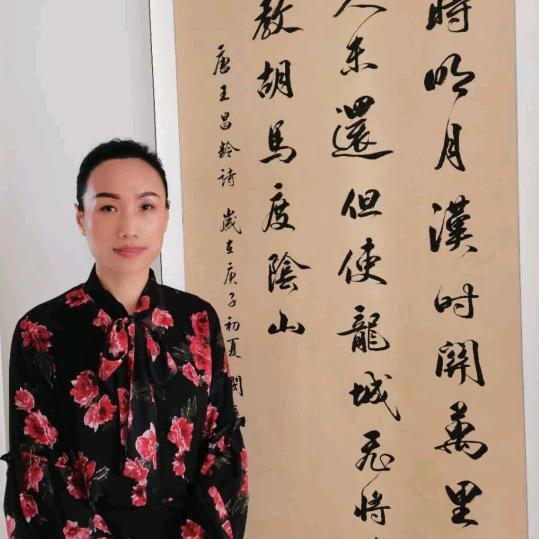 時明月漢时關萬里
人未還但使龍城飛将
教胡馬度陰山
唐王昌齡詩 歲在庚子初夏